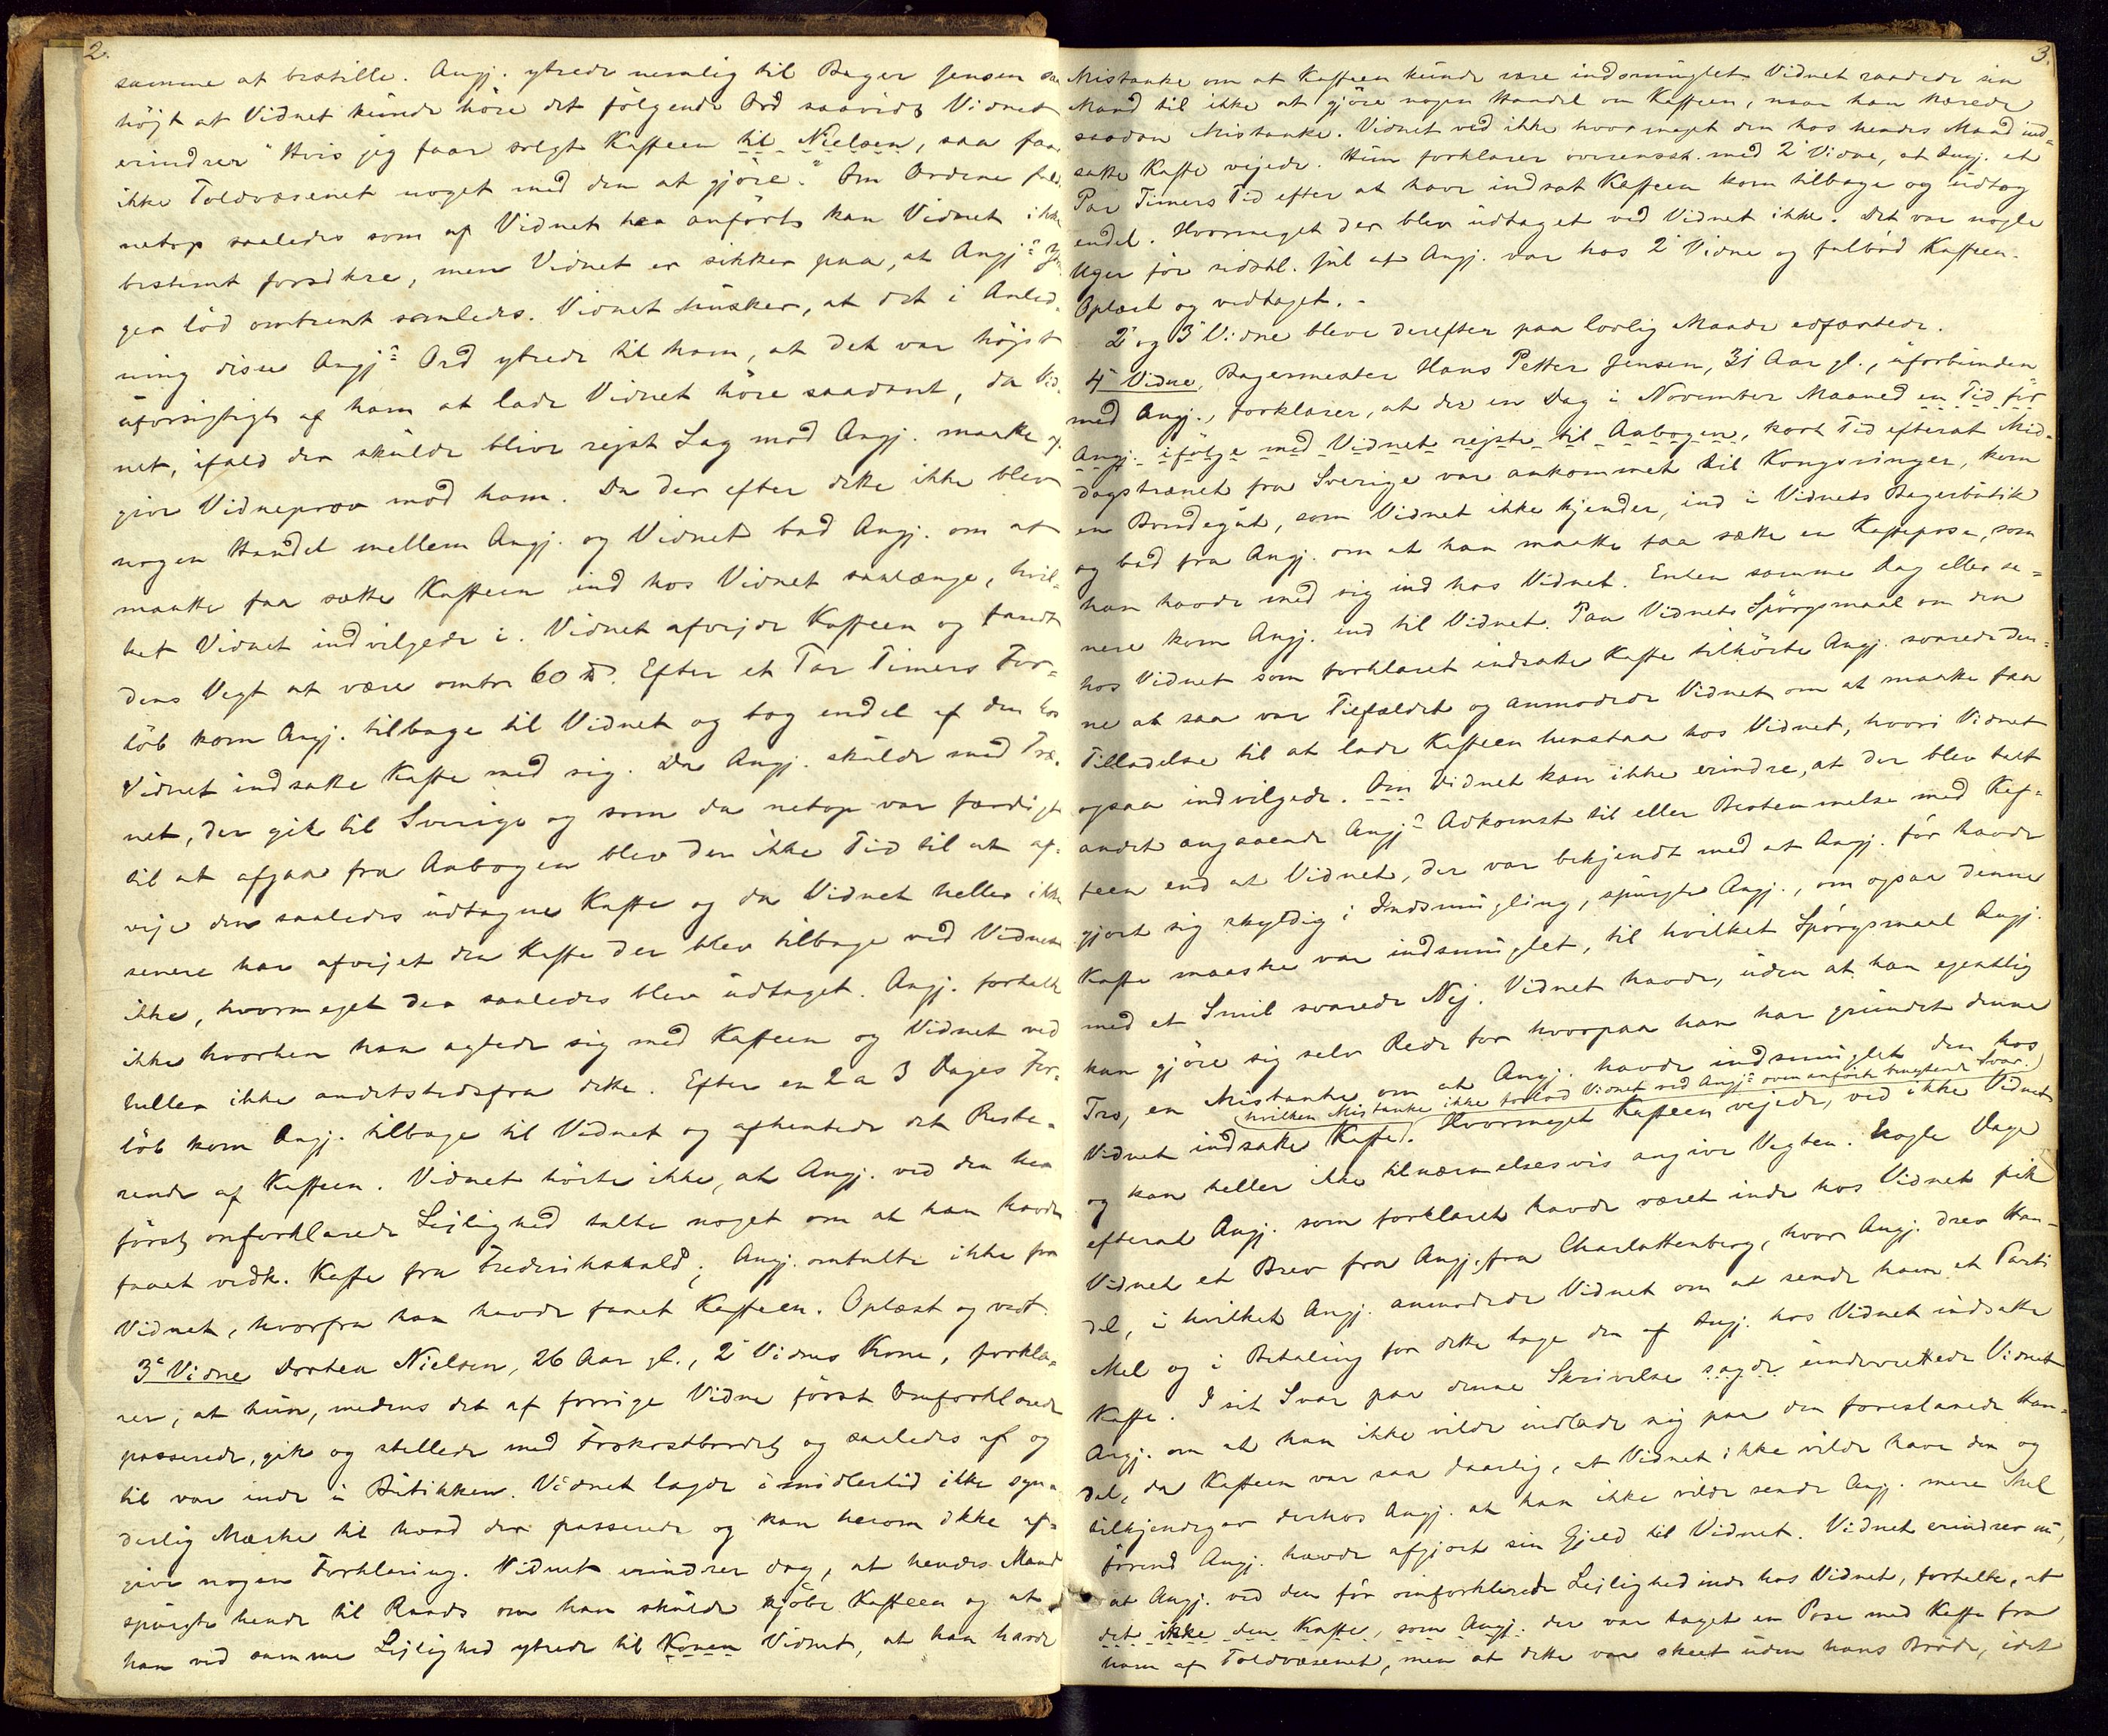 2.
samme at bestille. Angj. ytrede nemlig til Bager Jensen saa
højt at Vidnet kunde höre det fölgende Ord saavidt Vidnet
erindrer "Hvis jeg faar solgt Kaffeen til Nielsen, saa faar
ikke Toldvæsenet noget med den at gjöre." Om Ordene faldt
netop saaledes som af Vidnet her anfört kan Vidnet ikke
bestemt forsikre, men Vidnet er sikker paa, at Angj.s
ger löd omtrent saaledes. Vidnet husker, at det i Anled-
ning disse Angj.s Ord ytrede til ham, at det var højst
uforsigtigt af ham at lade Vidnet höre saadant, da Vid-
net, ifald der skulde blive rejst Sag mod Angj. maatte
give Vidneprov mod ham. Da der efter dette ikke blev
nogen Handel mellem Angj. og Vidnet bad Angj. om at
maatte faa sætte Kaffeen ind hos Vidnet saalænge, hvil-
ket Vidnet indvilgede i. Vidnet afvejde Kaffeen og fandt
dens Vegt at være omtr 60 ℔. Efter et Par Timers For-
löb kom Angj. tilbage til Vidnet og tog endel af den hos
Vidnet indsatte Kaffe med sig. Da Angj. skulde med Træ-
net, der gik til Sverige og som da netop var færdigt
til at afgaa fra Aabogen blev der ikke Tid til at af-
veje den saaledes udtagne Kaffe og da Vidnet heller ikke
senere har afvejet den Kaffe der blev tilbage ved Vidnet
ikke, hvormeget der saaledes blev udtaget. Angj. fortalte
ikke hvorhen han agtede sig med Kaffeen og Vidnet ved
heller ikke andetstedsfra dette. Efter en 2 a 3 Dages For-
löb kom Angj. tilbage til Vidnet og afhentede det Reste-
rende af Kaffeen. Vidnet hörte ikke, at Angj. ved den her
först omforklarede Lejlighed talte noget om at han havde
faaet vedk. Kaffe fra Fredrikshald; Angj. omtalte ikke for
Vidnet, hvorfra han havde faaet Kaffeen. Oplæst og vedt.
3e Vidne Dorthea Nielsen, 26 Aar gl., 2 Vidnes Kone, forkla-
rer, at hun, medens det af forrige Vidne först Omforklarede
passerede, gik og stellede med Frokostbordet og saaledes af og
til var inde i Butikken. Vidnet lagde imidlertid ikke syn-
derlig Mærke til hvad der passerede og kan herom ikke af-
give nogen Forklaring. Vidnet erindrer dog, at hendes Mand
spurgte hende til Raads om han skulde kjöbe Kaffeen og at
han ved samme Lejlighed ytrede til Konen Vidnet, at han havde
3.
Mistanke om at Kaffeen kunde være indsmuglet. Vidnet raadede sin
Mand til ikke at gjöre nogen Handel om Kaffeen, naar han nærede
saadan Mistanke. Vidnet ved ikke hvormeget den hos hendes Mand ind-
satte Kaffe vejede. Hun forklarer overensst. med 2 Vidne, at Angj. et
Par Timers Tid efter at have indsat Kaffeen kom tilbage og udtog
endel. Hvormeget der blev udtaget ved Vidnet ikke. Det var nogle
Uger för sidstl. Jul at Angj. var hos 2 Vidne og falböd Kaffeen.
Oplæst og vedtaget. -
2 og 3 Vidne bleve derefter paa lovlig Maade edfæstede.
4 Vidne, Bagermester Hans Petter Jensen, 31 Aar gl., uforbunden
med Angj., forklarer, at der en Dag i November Maaned en Tid för
Angj. ifölge med Vidnet rejste til Aabogen, kort Tid efterat Mid-
dagstrænet fra Sverige var ankommet til Kongsvinger, kom
en Bondegut, som Vidnet ikke kjender, ind i Vidnets Bagerbutik
og bad fra Angj. om at han maatte faa sætte en Kaffepose, som
han havde med sig ind hos Vidnet. Enten samme Dag eller se-
nere kom Angj. ind til Vidnet. Paa Vidnets Spörgsmaal om den
hos Vidnet som forklaret indsatte Kaffe tilhörte Angj. svarede den-
ne at saa var Tilfældet og anmodede Vidnet om at maatte faa
Tilladelse til at lade Kaffeen henstaa hos Vidnet, hvori Vidnet
ogsaa indvilgede. Om Vidnet kan ikke erindre, at der blev talt
andet angaaende Angj.s Adkomst til eller Bestemmelse med Kaf-
feen end at Vidnet, der var bekjendt med at Angj. för havde
gjort sig skyldig i Indsmugling, spurgte Angj., om ogsaa denne
Kaffe maaske var indsmuglet, til hvilket Spörgsmaal Angj.
med et Smil svarede Nej. Vidnet havde, uden at han egentlig
kan gjöre sig selv Rede for hvorpaa han har grundet denne
Tro, en Mistanke om at Angj. havde indsmuglet den hos
(hvilken Mistanke ikke forlod Vidnet ved Angj.s ovenanförte benegtende Svar.)
Vidnet indsatte Kaffe. Hvormeget Kaffeen vejede, ved ikke Vidnet
og kan heller ikke tilnærmelsesvis angive Vegten. Nogle Dage
efterat Angj. som forklaret havde været inde hos Vidnet fik
Vidnet et Brev fra Angj. fra Charlottenberg, hvor Angj. drev Han-
del, i hvilket Angj. anmodede Vidnet om at sende ham et Parti
Mel og i Betaling for dette tage den af Angj. hos Vidnet indsatte
Kaffe. I sit Svar paa denne Skrivelse sagde underrettede Vidnet
Angj. om at han ikke vilde indlade sig paa den foreslaaede Han-
del, da Kaffeen var saa daarlig, at Vidnet ikke vilde have den og
tilkjendegav derhos Angj. at han ikke vilde sende Angj. mere Mel
förend Angj. havde afgjort sin Gjeld til Vidnet. Vidnet erindrer nu,
at Angj. ved den för omforklarede Lejlighed inde hos Vidnet, fortalte, at
det ikke den Kaffe, som Angj. der var taget en Pose med Kaffe fra
ham af Toldvæsenet, men at dette var skeet uden hans Bröde, idet